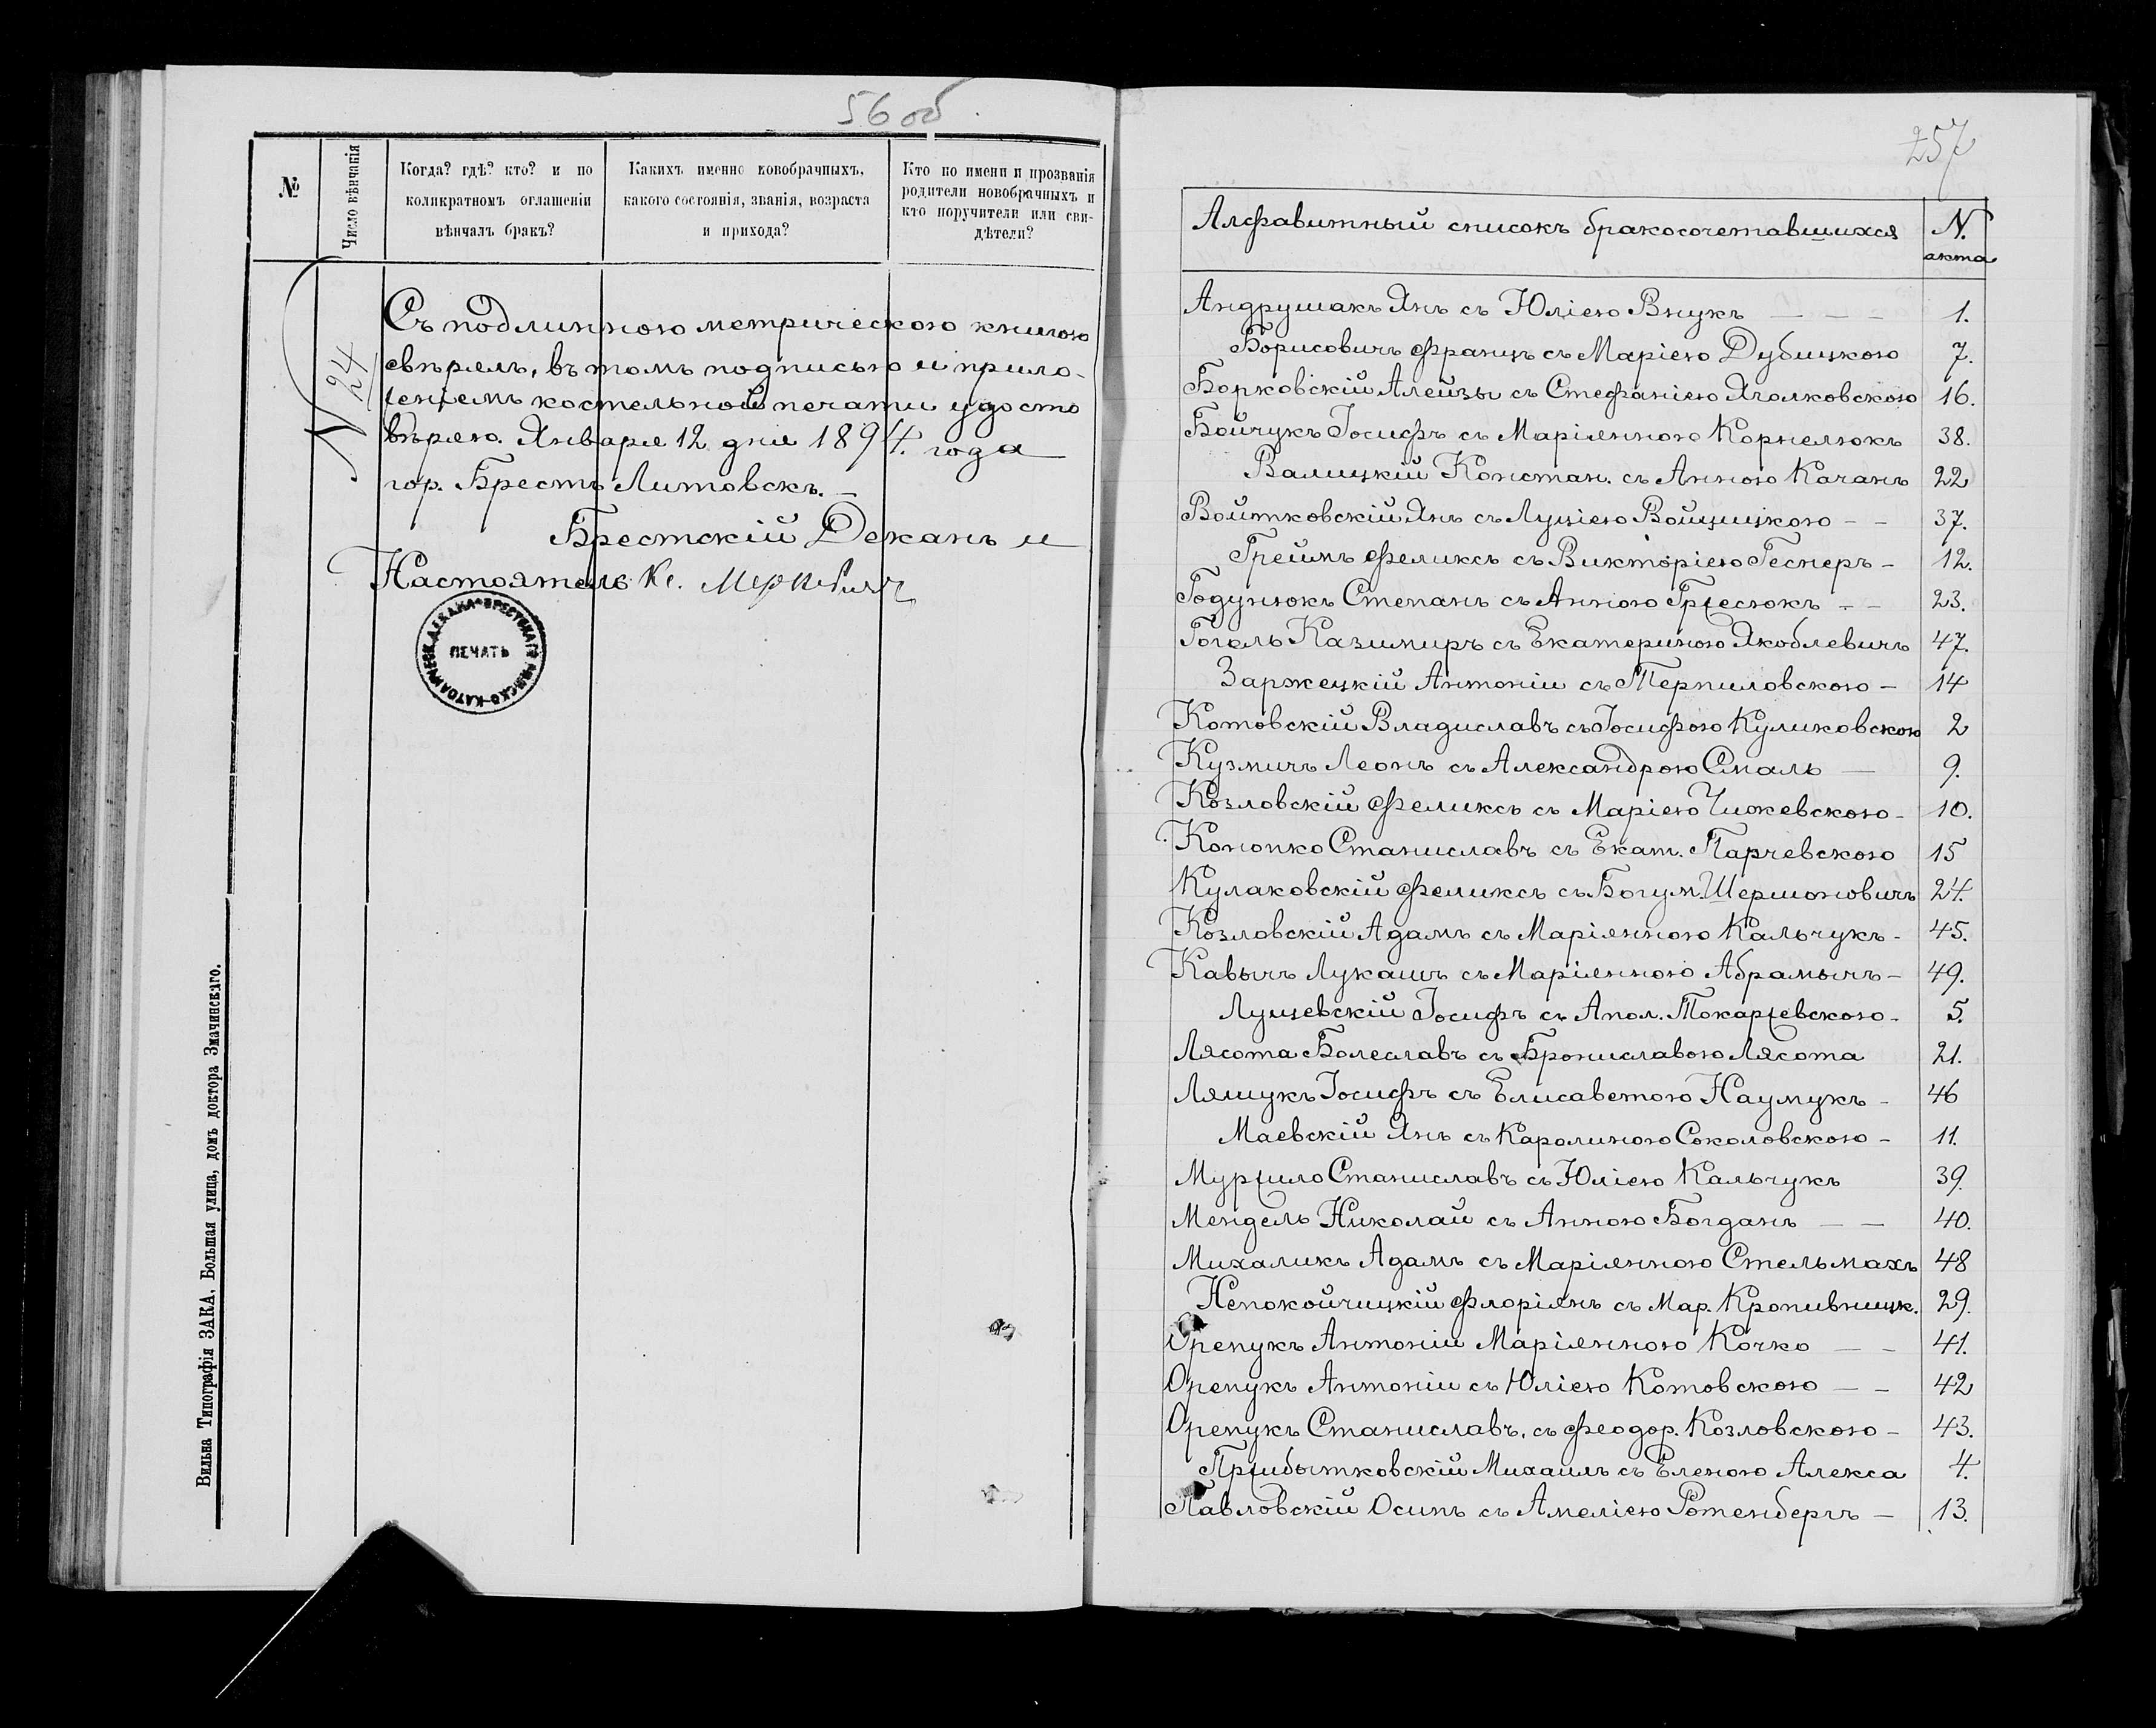 56 об
№
Число вѣнчанія
Когда? гдѣ? кто? и по
коликратномъ оглашеніи
вѣнчалъ бракъ?
Какихъ именно новобрачныхъ,
какого состоянія, званія, возраста
и прихода?
Кто по имени и прозванія
родители новобрачныхъ и
кто поручители или сви-
дѣтели?
N 24
Съ подлинною метрическою книгою
свѣрялъ, въ томъ подписью и прило-
женіемъ костельной печати удосто
вѣряю. Января 12 дня 1894. года
гор. Брестъ Литовскъ. —
Брестскій Деканъ и
Настоятель Кс.
ПЕЧАТЬ
Вильна Типографія ЗАКА, Большая улица, домъ доктора Змачинскаго.
257
Алфавитный списокъ бракосочетавшихся N.
акта
Андрушакъ Янъ съ Юліею Внукъ — — — 1.
Борисовичъ Францъ съ Маріею Дубицкою 7.
Борковскій Алейзы съ Стефаніею Ягалковскою 16.
Бойчукъ Іосифъ съ Маріянною Корнелюкъ 38.
Валицкій Констан. съ Анною Качанъ 22
Войтковскій Янъ съ Луціею Войцицкою — — 37.
Греймъ Феликсъ съ Викторіею Геснеръ — 12.
Годунюкъ Степанъ съ Анною Гржесюкъ — — 23.
Гоголь Казимиръ съ Екатериною Якоблевичъ 47.
Заржецкій Антоній съ Терпиловскою — 14
Котовскій Владиславъ съ Іосифою Куликовскою 2
Кузмичъ Леонъ съ Александрою Смаль — 9.
Козловскій Феликсъ съ Маріею Чижевскою — 10.
Конопко Станиславъ съ Екат. Парчевскою 15
Кулаковскій Феликсъ съ Богум. Шермоновичъ 24.
Козловскій Адамъ съ Маріянною Кальчукъ — 45.
Кавычъ Лукашъ съ Маріянною Абрамычъ — 49.
Лущевскій Іосифъ съ Апол. Токаржевскою — 5.
Лясота Болеславъ съ Брониславою Лясота 21.
Ляшукъ Іосифъ съ Елисаветою Наумукъ — 46
Маевскій Янъ съ Каролиною Соколовскою — 11.
Муржило Станиславъ съ Юліею Кальчукъ 39.
Мендель Николай съ Анною Богданъ — — 40.
Михаликъ Адамъ съ Маріянною Стельмахъ 48
Непокойчицкій Флоріянъ съ Мар. Кропивницк. 29.
Орепукъ Антоній Маріянною Кочко — — 41.
Орепукъ Антоній съ Юліею Котовскою — — 42
Орепукъ Станиславъ. съ Феодор. Козловскою — 43.
Пржибытковскій Михаилъ съ Еленою Алекса 4.
Павловскій Осипъ съ Амеліею Ротенбергъ — 13.